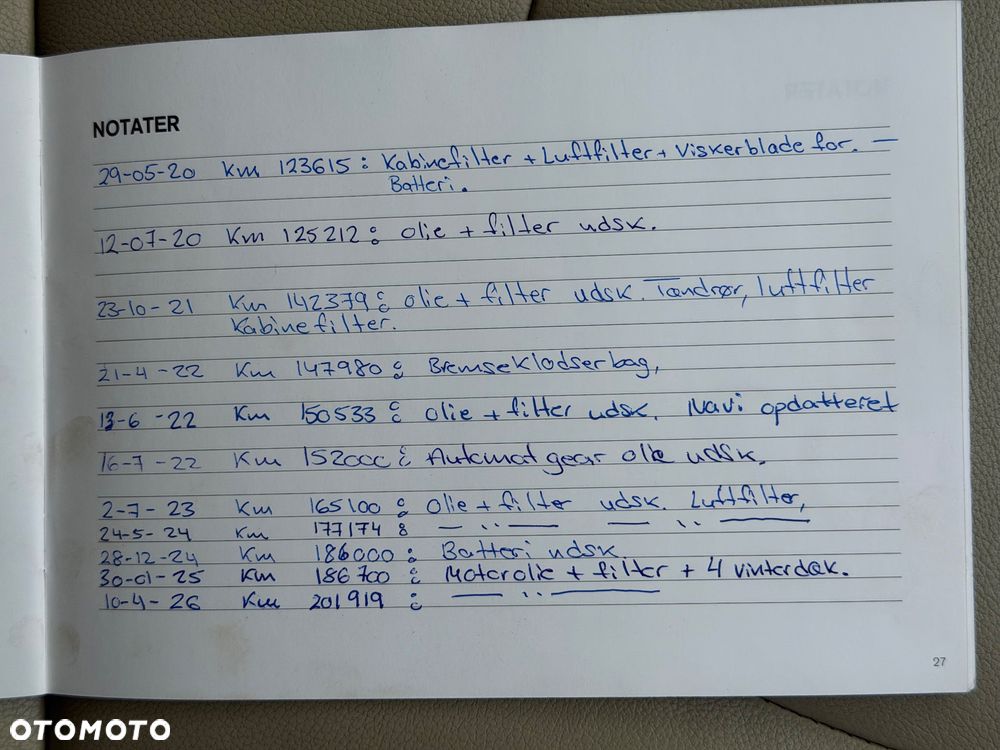 NOTATER
29-05-20 Km 123615 : Kabinefilter + Luftfilter + Viskerblade for. —
Batteri.
12-07-20 Km 125212 : olie + filter udsk.
23-10-21 Km 142379 : olie + filter udsk. Tændrør, luftfilter
Kabinefilter.
21-4-22 Km 147980 : Bremseklodser bag,
13-6-22 Km 150533 : olie + filter udsk. Navi opdatteret
16-7-22 Km 152000 : Automat gear olie udsk.
2-7-23 Km 165100 : olie + filter udsk. Luftfilter,
24-5-24 Km 177174 : — ·· — — ·· —
28-12-24 Km 186000 : Batteri udsk.
30-01-25 Km 186700 : Motorolie + filter + 4 vinterdæk.
10-4-26 Km 201919 : — ·· —
27
OTOMOTO